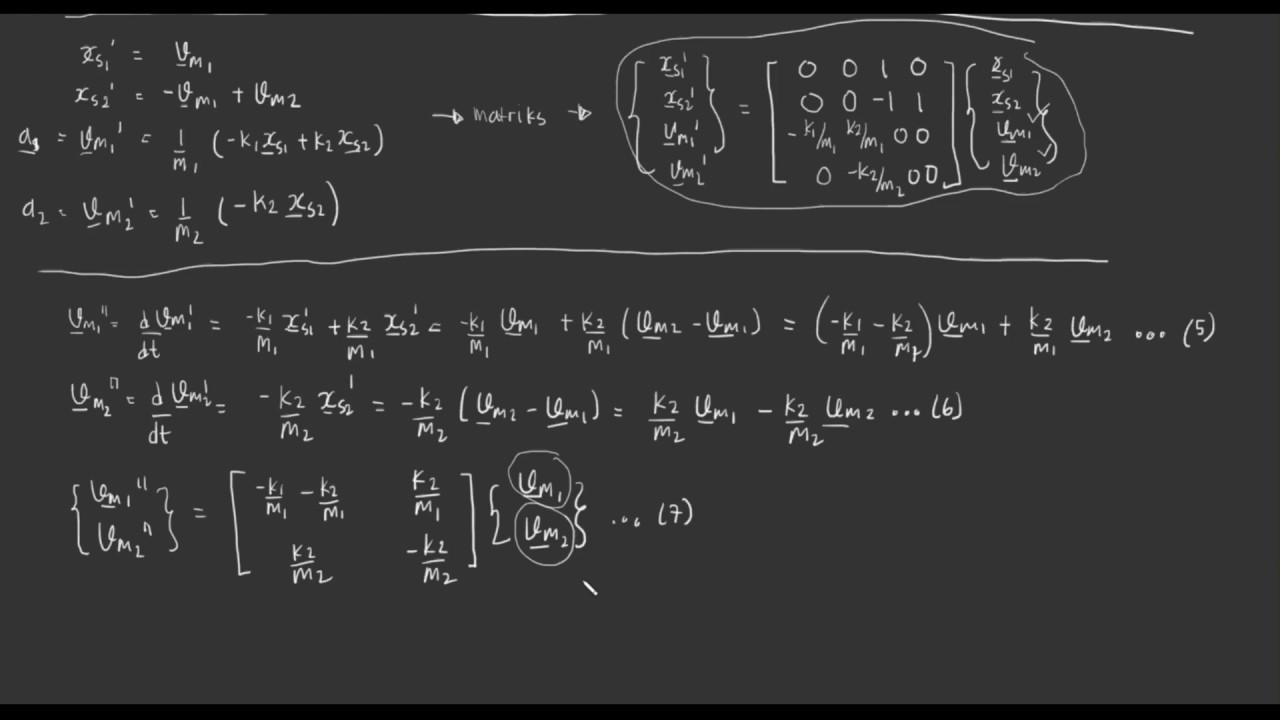 x_s1' = v_m1
x_s2' = -v_m1 + v_m2
a_1 = v_m1' = 1/m_1 (-k_1 x_s1 + k_2 x_s2)
a_2 = v_m2' = 1/m_2 (-k_2 x_s2)
→ matriks →
{x_s1' x_s2' v_m1' v_m2'} = [0 0 1 0
0 0 -1 1
-k_1/m_1 k_2/m_1 0 0
0 -k_2/m_2 0 0] {x_s1 x_s2 v_m1 v_m2}
v_m1'' = d/dt v_m1' = -k_1/m_1 x_s1' + k_2/m_1 x_s2' = -k_1/m_1 v_m1 + k_2/m_1 (v_m2 - v_m1) = (-k_1/m_1 - k_2/m_1) v_m1 + k_2/m_1 v_m2 ... (5)
v_m2'' = d/dt v_m2' = -k_2/m_2 x_s2' = -k_2/m_2 (v_m2 - v_m1) = k_2/m_2 v_m1 - k_2/m_2 v_m2 ... (6)
{v_m1'' v_m2''} = [-k_1/m_1 - k_2/m_1 k_2/m_1
k_2/m_2 -k_2/m_2] {v_m1 v_m2} ... (7)